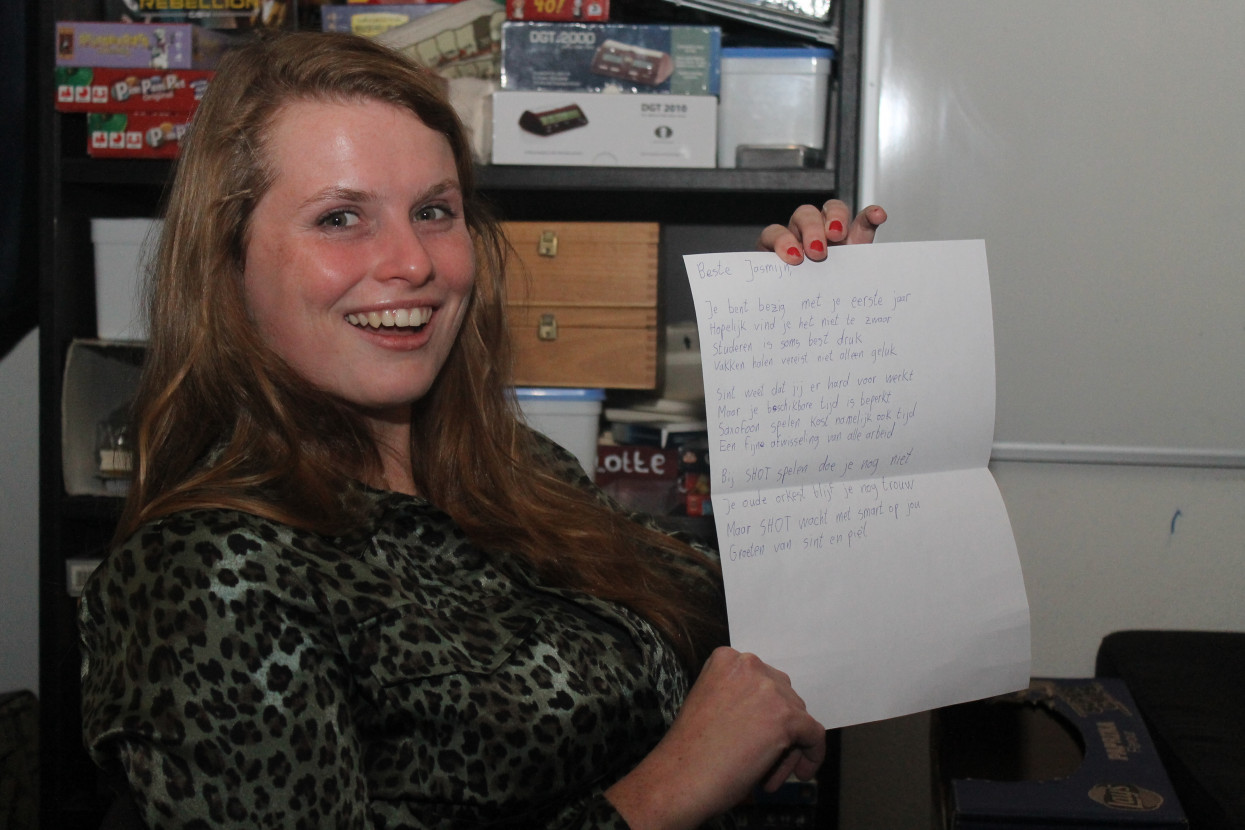 REBELLION
PimPamPet
Original
40!
DGT 2000
DGT 2010
LOTTE
Beste Jasmijn,
Je bent bezig met je eerste jaar
Hopelijk vind je het niet te zwaar
Studeren is soms best druk
Vakken halen vereist niet alleen geluk
Sint weet dat jij er hard voor werkt
Maar je beschikbare tijd is beperkt
Saxofoon spelen kost namelijk ook tijd
Een fijne afwisseling van alle arbeid
Bij SHOT spelen doe je nog niet
Je oude orkest blijf je nog trouw
Maar SHOT wacht met smart op jou
Groeten van sint en piet